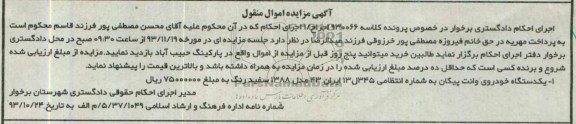 آگهی مزایده اموال منقول
اجرای احکام دادگستری برخوار در خصوص پرونده کلاسه اجرای احکام که در آن محکوم علیه آقای محسن مصطفی پور فرزند قاسم محکوم است
به پرداخت مهریه در حق خانم فیروزه مصطفی پور خرزوقی فرزند در نظر دارد جلسه مزایده ای در مورخه ۹۳/۱۱/۱۹ از ساعت ۰۹:۳۰ صبح در محل دادگستری
برخوار دفتر اجرای احکام برگزار نماید طالبین خرید میتوانند پنج روز قبل از مزایده از اموال واقع در پارکینگ حبیب آباد بازدید نمایید. مزایده از مبلغ ارزیابی شده
شروع و برنده کسی است که حداقل ده درصد مبلغ ارزیابی شده را در زمان مزایده به همراه داشته باشد و بالاترین قیمت را پیشنهاد نماید.
۱- یکدستگاه خودروی وانت پیکان به شماره انتظامی ۳۴۵ل۱۳ ایران ۴۳ مدل ۱۳۸۸ سفید رنگ به مبلغ ۷۵۰۰۰۰۰۰ ریال
مدیر اجرای احکام حقوقی دادگستری شهرستان برخوار
شماره نامه اداره فرهنگ و ارشاد اسلامی ۵/۳۷/۱۰۴۹/م الف به تاریخ ۹۳/۱۰/۲۴